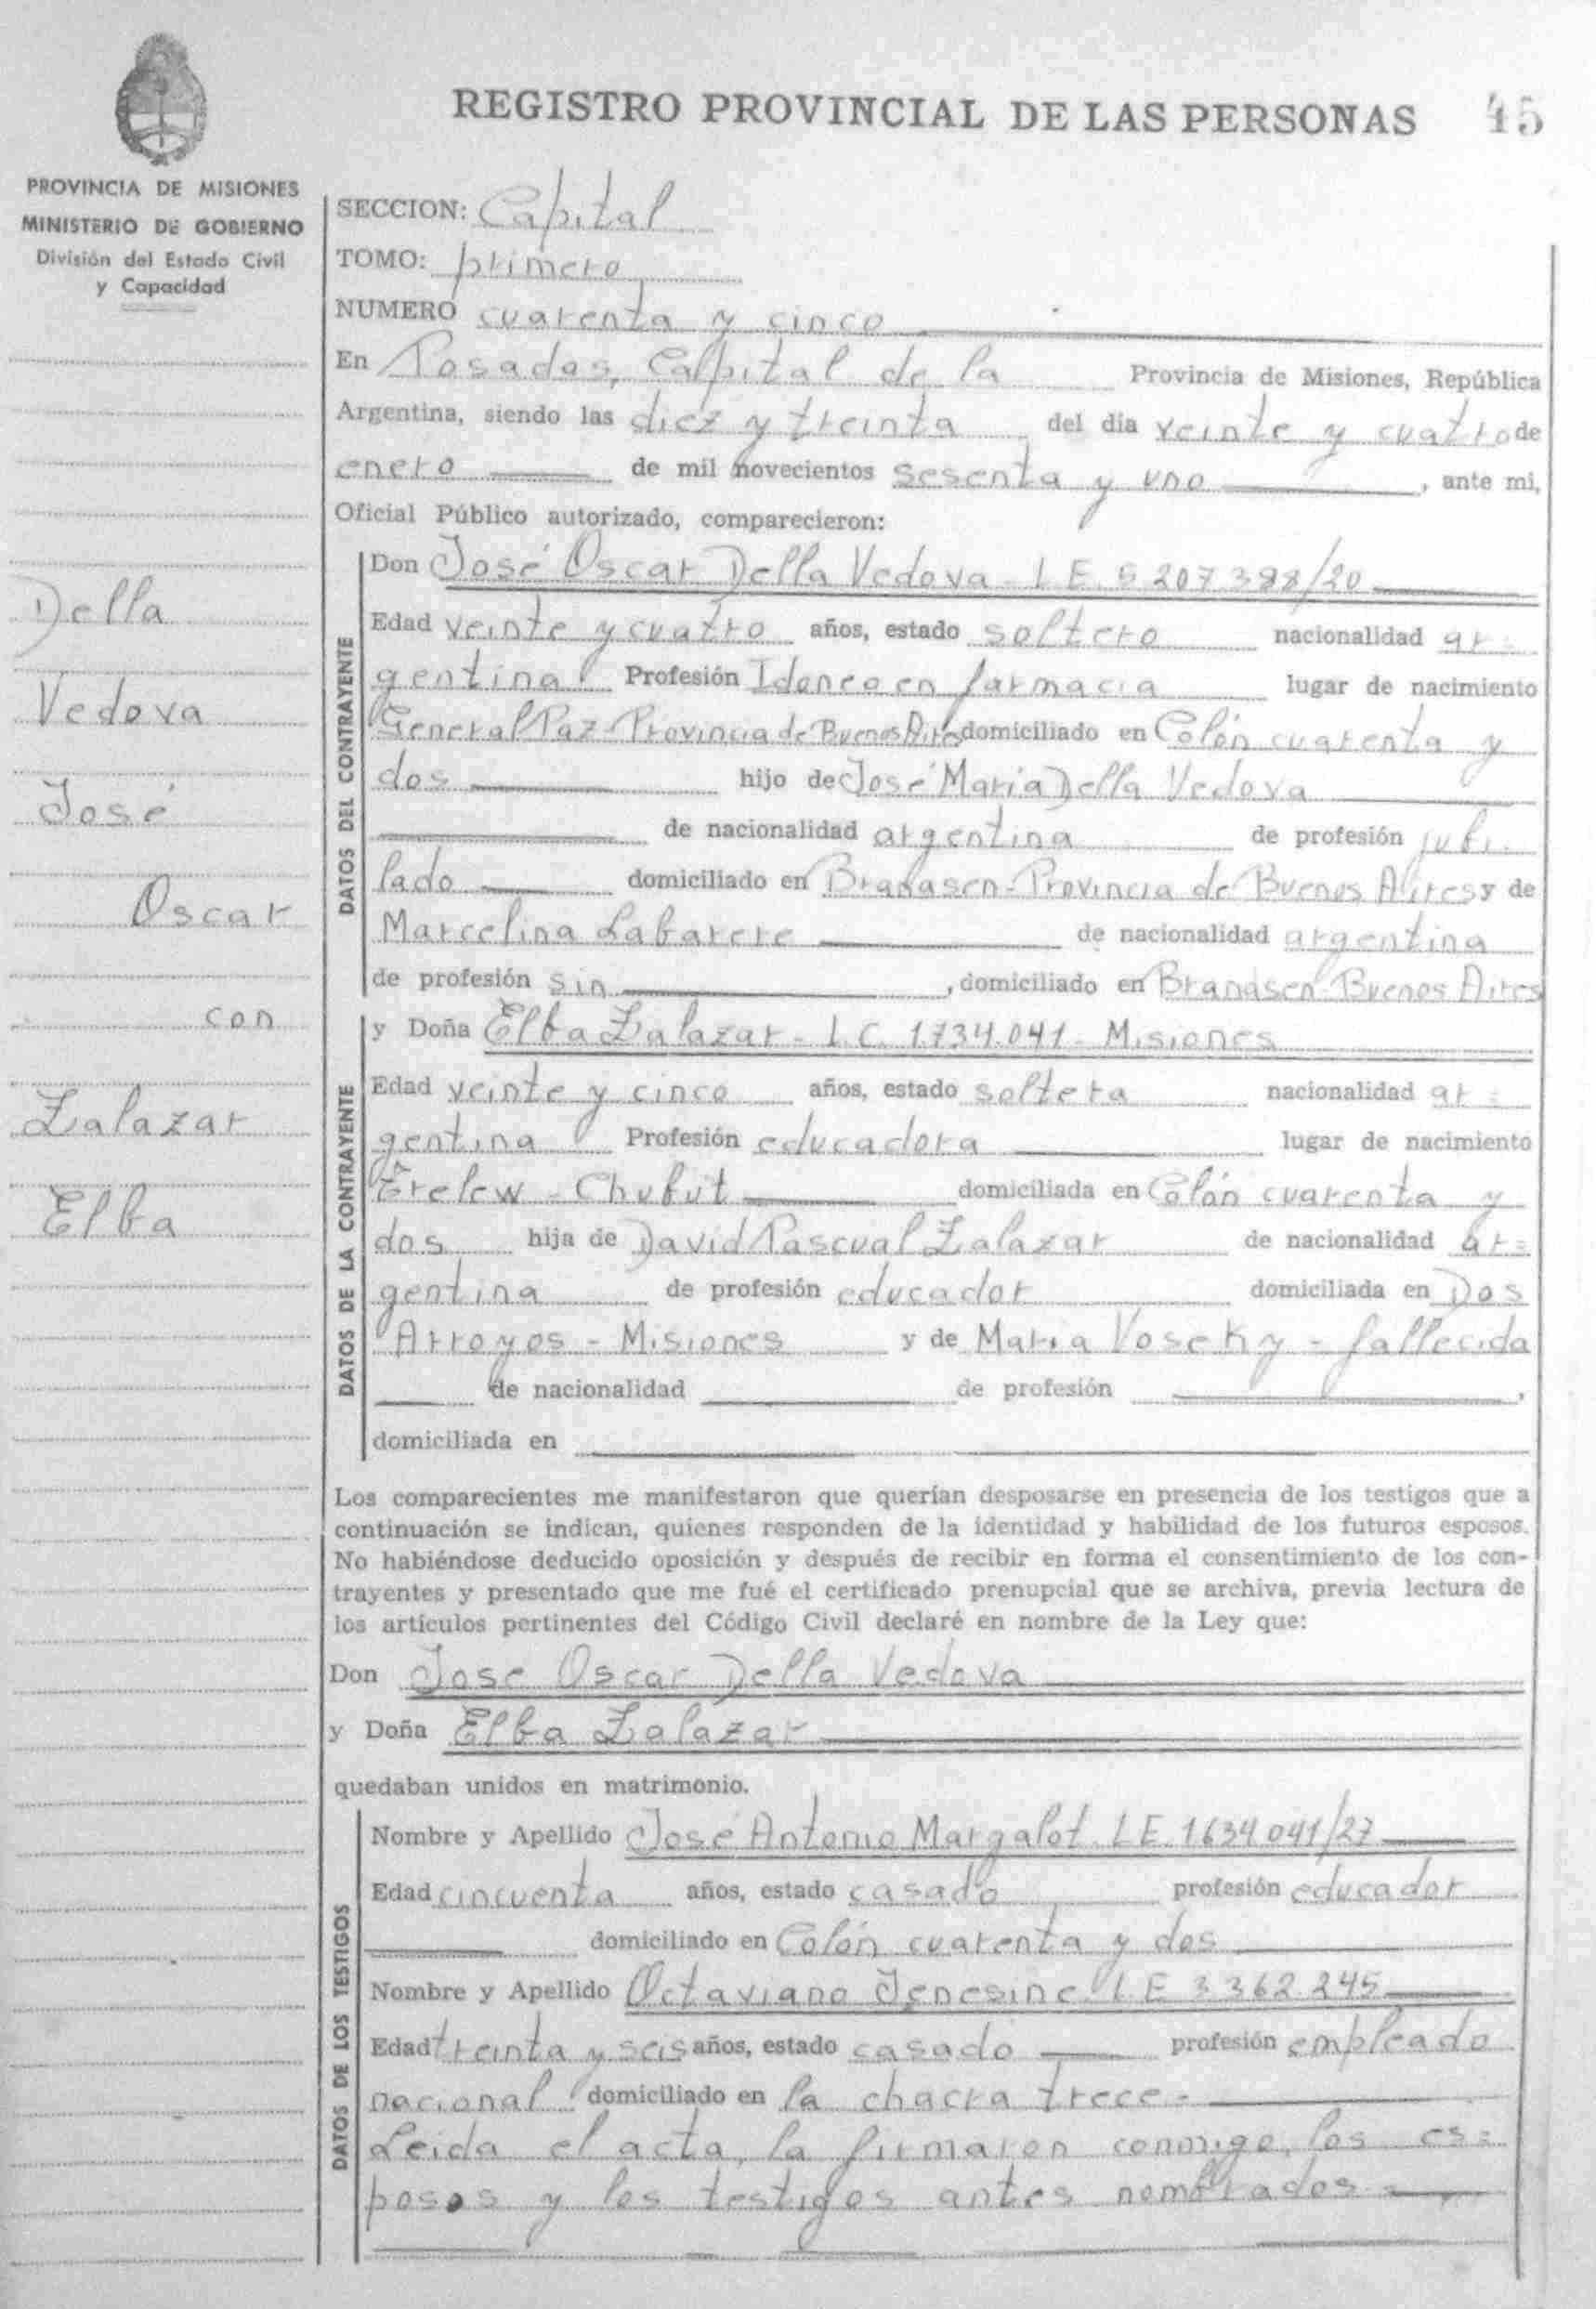 REGISTRO PROVINCIAL DE LAS PERSONAS 45
PROVINCIA DE MISIONES
MINISTERIO DE GOBIERNO
División del Estado Civil
y Capacidad
Della
Vedova
José
Oscar
con
Zalazar
Elba
SECCION: Capital
TOMO: primero
NUMERO cuarenta y cinco
En Posadas, Capital de la Provincia de Misiones, República
Argentina, siendo las diez y treinta del día veinte y cuatro de
enero de mil novecientos sesenta y uno, ante mi,
Oficial Público autorizado, comparecieron:
DATOS DEL CONTRAYENTE
Don José Oscar Della Vedova - L E 5 207 398/20
Edad veinte y cuatro años, estado soltero nacionalidad ar=
gentina Profesión Idoneo en farmacia lugar de nacimiento
General Paz - Provincia de Buenos Aires domiciliado en Colón cuarenta y
dos hijo de José María Della Vedova
de nacionalidad argentina de profesión jubi-
lado domiciliado en Brandsen - Provincia de Buenos Aires y de
Marcelina Labarere de nacionalidad argentina
de profesión sin, domiciliado en Brandsen - Buenos Aires
DATOS DE LA CONTRAYENTE
y Doña Elba Zalazar - L.C. 1.734.041 - Misiones
Edad veinte y cinco años, estado soltera nacionalidad ar=
gentina Profesión educadora lugar de nacimiento
Trelew - Chubut domiciliada en Colón cuarenta y
dos hija de David Pascual Zalazar de nacionalidad ar=
gentina de profesión educador domiciliada en Dos
Arroyos - Misiones y de María Voseky - fallecida
de nacionalidad de profesión ,
domiciliada en
Los comparecientes me manifestaron que querían desposarse en presencia de los testigos que a
continuación se indican, quienes responden de la identidad y habilidad de los futuros esposos.
No habiéndose deducido oposición y después de recibir en forma el consentimiento de los con-
trayentes y presentado que me fué el certificado prenupcial que se archiva, previa lectura de
los artículos pertinentes del Código Civil declaré en nombre de la Ley que:
Don Jose Oscar Della Vedova
y Doña Elba Zalazar
quedaban unidos en matrimonio.
DATOS DE LOS TESTIGOS
Nombre y Apellido José Antonio Margalot L E 1634 041/27
Edad cincuenta años, estado casado profesión educador
domiciliado en Colón cuarenta y dos
Nombre y Apellido Octaviano Jenesine L E 3 362 245
Edad treinta y seis años, estado casado profesión empleado
nacional domiciliado en la chacra trece -
Leida el acta, la firmaron conmigo, los es=
posos y los testigos antes nombrados -